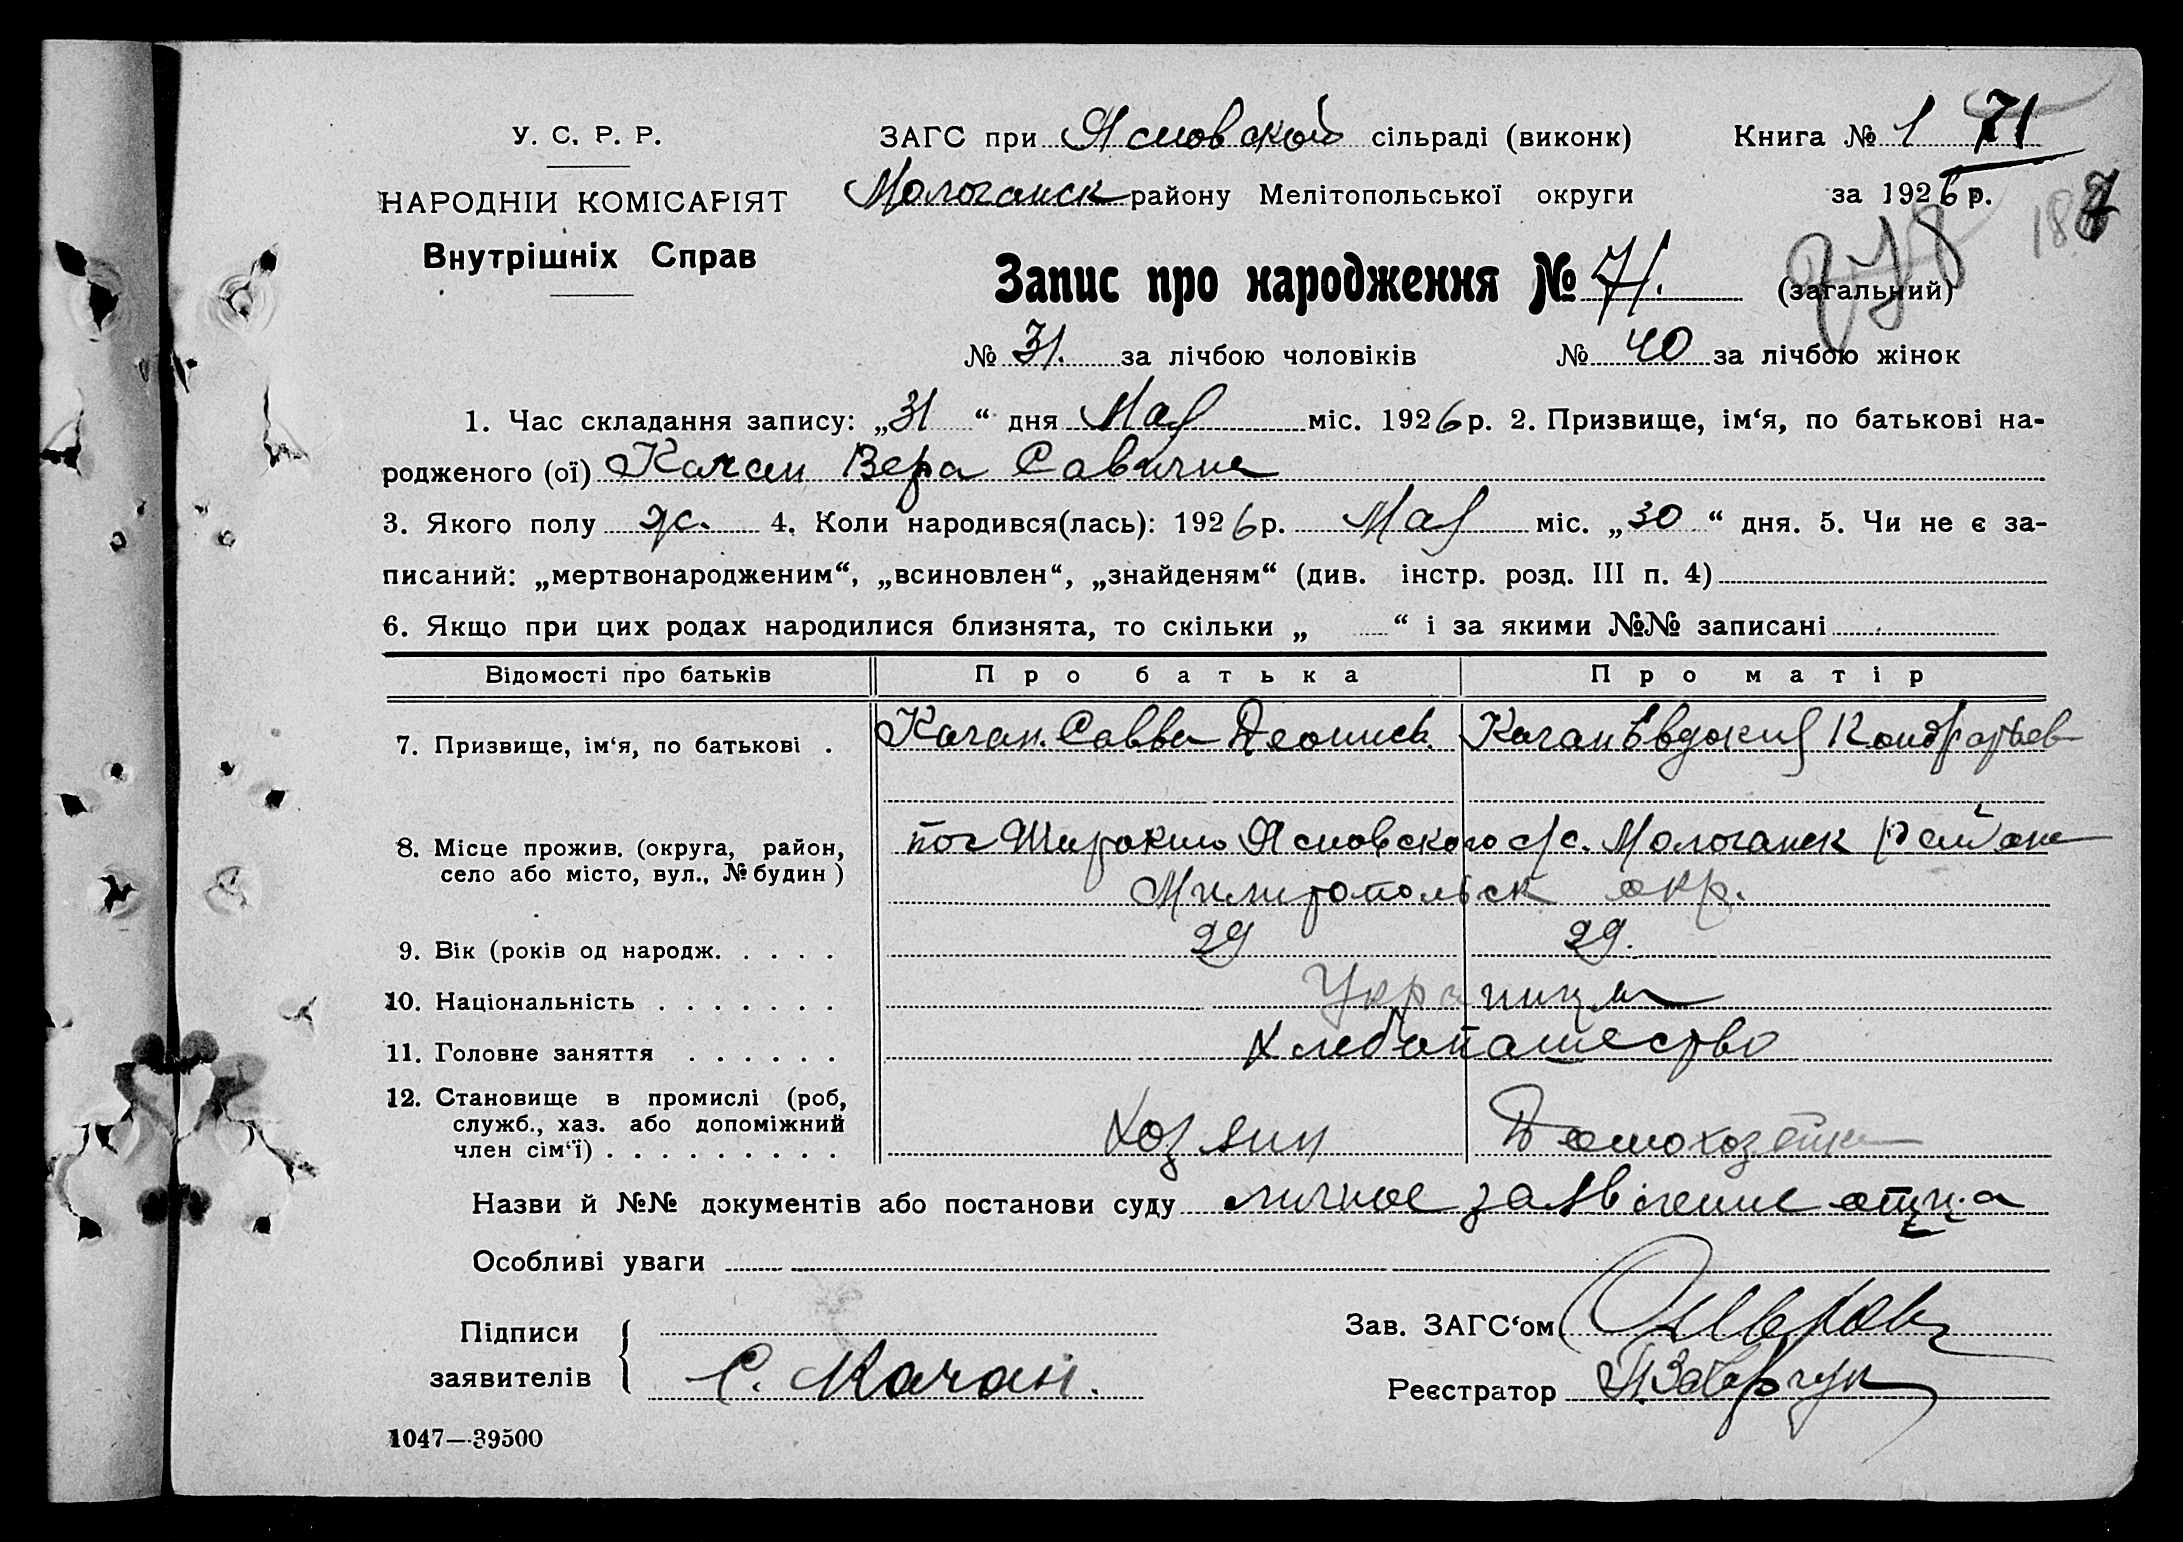 У. С. Р. Р.
НАРОДНІЙ КОМІСАРІЯТ
Внутрішніх Справ
ЗАГС при Ясновской сільраді (виконк)
Молочанск району Мелітопольської округи
Книга № 1 71
за 1926 р.
187
Запис про народження № 71. (загальний)
№ 31. за лічбою чоловіків № 40 за лічбою жінок
1. Час складання запису: „31“ дня Мая міс. 1926 р. 2. Призвище, ім‘я, по батькові на-
родженого (ої) Качан Вера Савична
3. Якого полу ж. 4. Коли народився(лась): 1926 р. Мая міс. „30“ дня. 5. Чи не є за-
писаний: „мертвонародженим“, „всиновлен“, „знайденям“ (див. інстр. розд. III п. 4)
6. Якщо при цих родах народилися близнята, то скільки „ “ і за якими №№ записані
Відомості про батьків Про батька Про матір
7. Призвище, ім‘я, по батькові . Качан. Савва Деонисв. Качан Евдокия Кондратьев
8. Місце прожив. (округа, район, село або місто, вул., № будин) пос Широкино Ясновского с/с. Молочанск района
Милитопольск окр.
9. Вік (років од народж. . . . . 29 29.
10. Національність . . . . . . . Украинцы
11. Головне заняття . . . . . . Хлебопашество
12. Становище в промислі (роб,
служб., хаз. або допоміжний
член сім‘ї) . . . . . . . . . Хозяин Домохозяйка
Назви й №№ документів або постанови суду личное заявление отца
Особливі уваги
Підписи
заявителів
С. Качан.
Зав. ЗАГС‘ом
Реєстратор
1047—39500